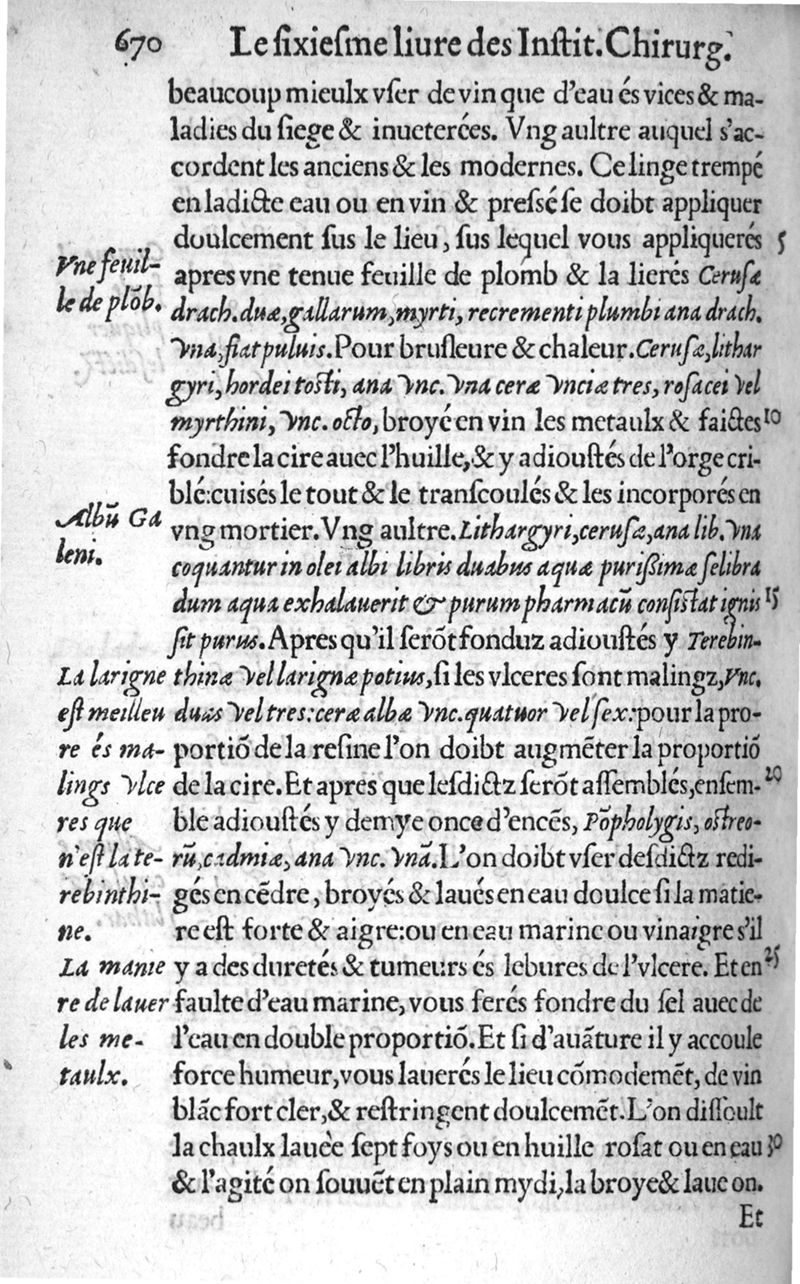 670 Le ſixieſme liure des Inſtit. Chirurg.
beaucoup mieulx vſer de vin que d'eau és vices & ma-
ladies du ſiege & inueterées. Vng aultre auquel s'ac-
cordent les anciens & les modernes. Ce linge trempé
en ladicte eau ou en vin & preſsé ſe doibt appliquer
doulcement ſus le lieu, ſus lequel vous appliquerés 5
Vne feuil-
le de plōb.
apres vne tenue feuille de plomb & la lierés Ceruſæ
drach. duæ, gallarum, myrti, recrementi plumbi ana drach.
vna, fiat puluis. Pour bruſleure & chaleur. Ceruſæ, lithar
gyri, hordei toſti, ana vnc. vna ceræ vnciæ tres, roſacei vel
myrthini, vnc. octo, broyé en vin les metaulx & faictes 10
fondre la cire auec l'huille, & y adiouſtés de l'orge cri-
blé: cuisés le tout & le tranſcoulés & les incorporés en
Albū Ga
leni.
vng mortier. Vng aultre. Lithargyri, ceruſæ, ana lib. vna
coquantur in olei albi libris duabus aquæ purißimæ ſelibra
dum aqua exhalauerit & purum pharmacū conſiſtat ignis 15
ſit purus. Apres qu'il ſerōt fonduz adiouſtés y Terebin-
thinæ vel larignæ potius, ſi les vlceres ſont malingz, vnc.
duas vel tres: ceræ albæ vnc. quatuor vel ſex: pour la pro-
portiō de la reſine l'on doibt augmēter la proportiō
de la cire. Et apres que leſdictz ſerōt aſſemblés, enſem- 20
ble adiouſtés y demye once d'encēs, Pōpholygis, oſtreo-
rū, cadmiæ, ana vnc. vnā. L'on doibt vſer deſdictz redi-
gés en cēdre, broyés & laués en eau doulce ſi la matie-
re eſt forte & aigre: ou en eau marine ou vinaigre s'il
La larigne
eſt meilleu
re és ma-
lings vlce
res que
n'eſt la te-
rebinthi-
ne.
y a des duretés & tumeurs és lebures de l'vlcere. Et en 25
faulte d'eau marine, vous ferés fondre du ſel auec de
l'eau en double proportiō. Et ſi d'auāture il y accoule
force humeur, vous lauerés le lieu cōmodemēt, de vin
La manie
re de lauer
les me-
taulx.
blāc fort cler, & reſtringent doulcemēt. L'on diſſoult
la chaulx lauée ſept foys ou en huille roſat ou en eau 30
& l'agité on ſouuēt en plain mydi, la broye & laue on.
Et